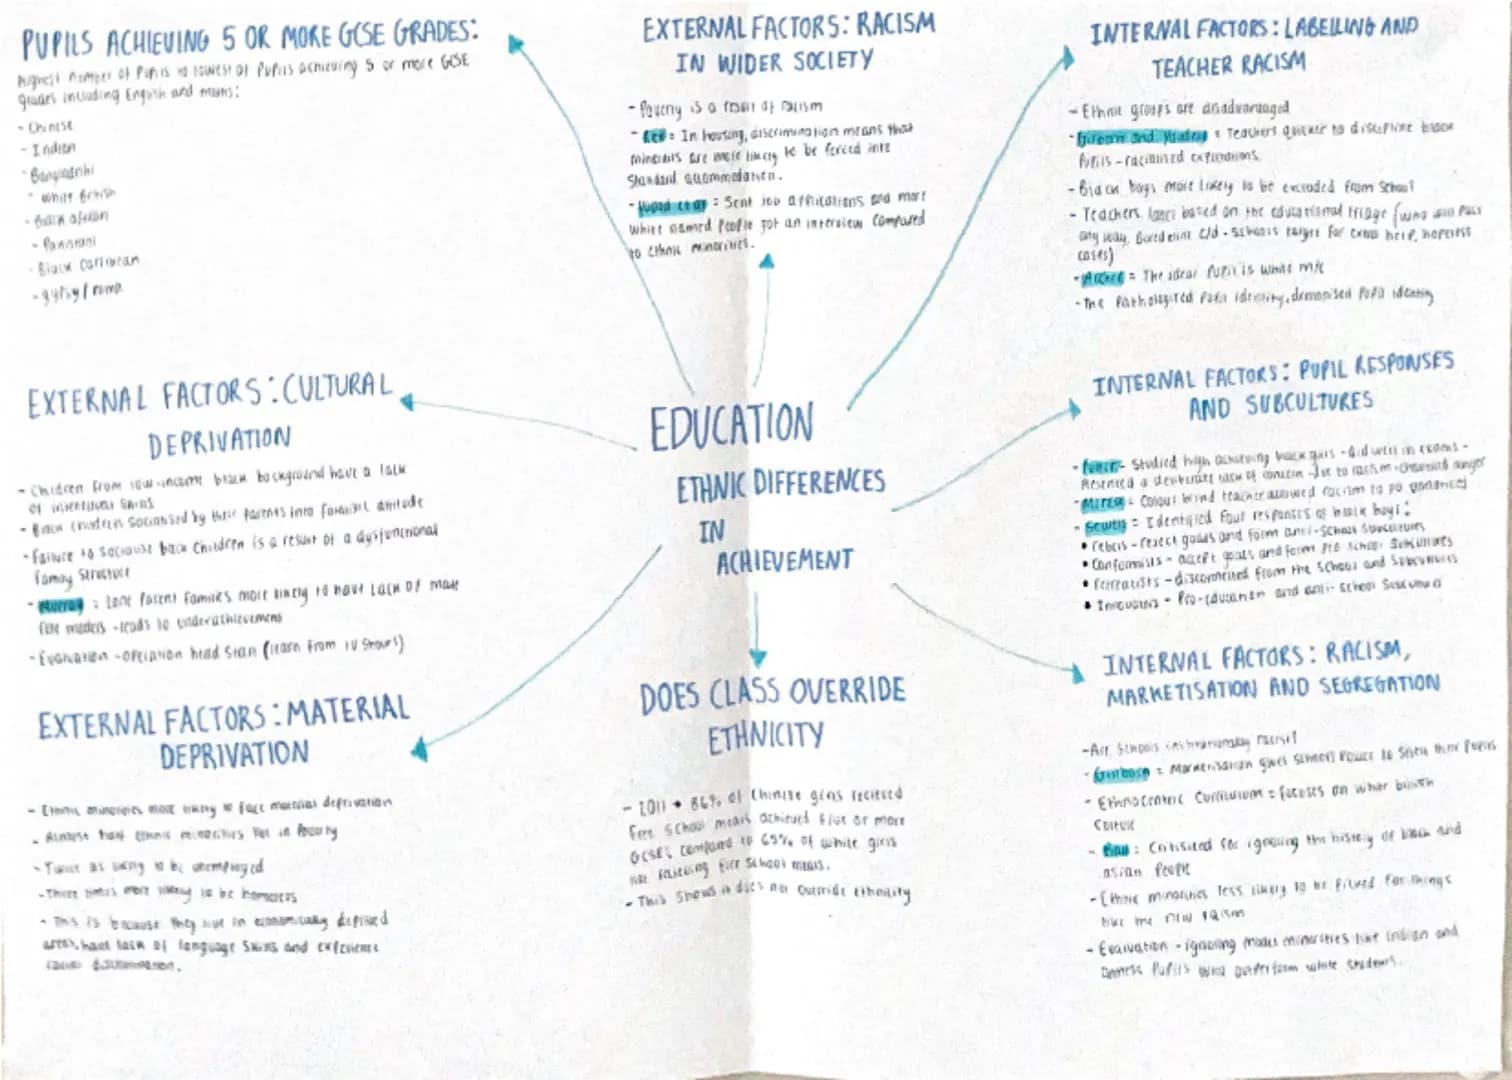 PUPILS ACHIEVING 5 OR MORE GCSE GRADES:
Highest number of pupils to lowest of pupils achieving 5 or more GCSE
grades including English and maths:
- Chinese
- Indian
- Bangladeshi
- White British
- Black african
- Pakistani
- Black Caribbean
- gypsy / roma
EXTERNAL FACTORS: RACISM
IN WIDER SOCIETY
- Poverty is a result of racism
- Rex = In housing, discrimination means that
minorities are more likely to be forced into
Standard accommodation.
- Wood et al = Sent job applications and more
white named People got an interview Compared
to Ethnic minorities.
INTERNAL FACTORS: LABELLING AND
TEACHER RACISM
- Ethnic groups are disadvantaged
- Gillborn and Youdell = Teachers quicker to discipline black
Pupils - racialised expectations.
- Black boys more likely to be excluded from School
- Teachers label based on the educational triage (who will Pass
any way, Borderline c/d - schools target for extra help, hopeless
cases)
- Archer = The ideal Pupil is white m/c
- The Pathologised Pupil identity, demonised Pupil identity
EXTERNAL FACTORS: CULTURAL
DEPRIVATION
- Children from low-income black background have a lack
of intellectual skills
- Black children Socialised by their Parents into fatalist attitude
- Failure to Socialise black Children is a result of a dysfunctional
family Structure
- Murray : Lone Parent families more likely to have Lack of male
role models - leads to underachievement
- Evaluation - operation head Start
EDUCATION
ETHNIC DIFFERENCES
IN
ACHIEVEMENT
INTERNAL FACTORS: PUPIL RESPONSES
AND SUBCULTURES
- Fuller - Studied high achieving black girls - did well in exams -
Presented a deliberate lack of concern - due to racism - channeled anger
- Mirza = Colour blind teacher allowed racism to go
- Sewell = Identified four responses of black boys:
• rebels - reject goals and form anti-School Subcultures
• Conformists - accept goals and form Pro School Subcultures
• retreatists - disconnected from the School and Subcultures
• Innovators - Pro-education and anti-School Subcultures
EXTERNAL FACTORS: MATERIAL
DEPRIVATION
- Ethnic minorities most likely to face material deprivation
- Almost half ethnic minorities live in Poverty
- Twice as likely to be unemployed
- Three times more likely to be homeless
- This is because they live in economically deprived
areas, have lack of language skills and experience
racial discrimination.
DOES CLASS OVERRIDE
ETHNICITY
- 2011 → 86% of Chinese girls recieved
Free School meals achieved five or more
GCSE's compared to 65% of white girls
not recieving Free School meals.
- This Shows it does not override ethnicity
INTERNAL FACTORS: RACISM,
MARKETISATION AND SEGREGATION
- Are Schools institutionally racist?
- Gillborn = Marketisation gives Schools Power to Select their Pupils
- Ethnocentric Curriculum = focuses on white british
Culture
- Ball : Criticised for ignoring the history of black and
asian People
- Ethnic minorities less likely to be Picked for things
like the new IQism
- Evaluation - ignoring model minorities like Indian and
Chinese Pupils who outperform white students.